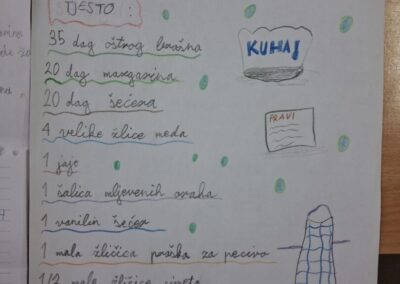 TJESTO :
35 dag oštrog brašna
KUHAJ
20 dag margarina
20 dag šećera
PRAVI
4 velike žlice meda
1 jaje
1 šalica mljevenih oraha
1 vanilin šećer
1 mala žličica praška za pecivo
1/2 male žličice cimeta